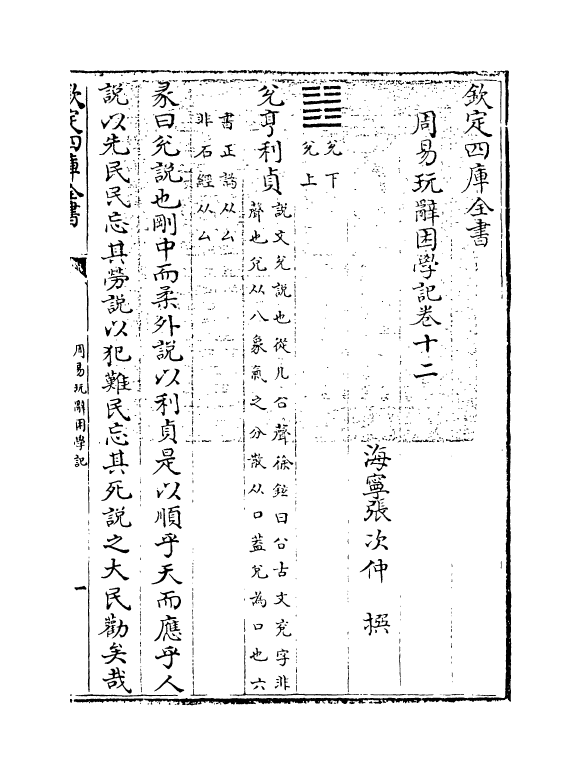 欽定四庫全書
周易玩辭困學記卷十二
海寧張次仲 撰
兌下
兌上
兌亨利貞說文兌說也從几㕣聲徐鉉曰㕣古文兖字非
聲也兌从八象氣之分散从口蓋兌為口也六
書正譌从厶
非石經从厶
彖曰兌說也剛中而柔外說以利貞是以順乎天而應乎人
說以先民民忘其勞說以犯難民忘其死說之大民勸矣哉
欽定四庫全書
周易玩辭困學記
一